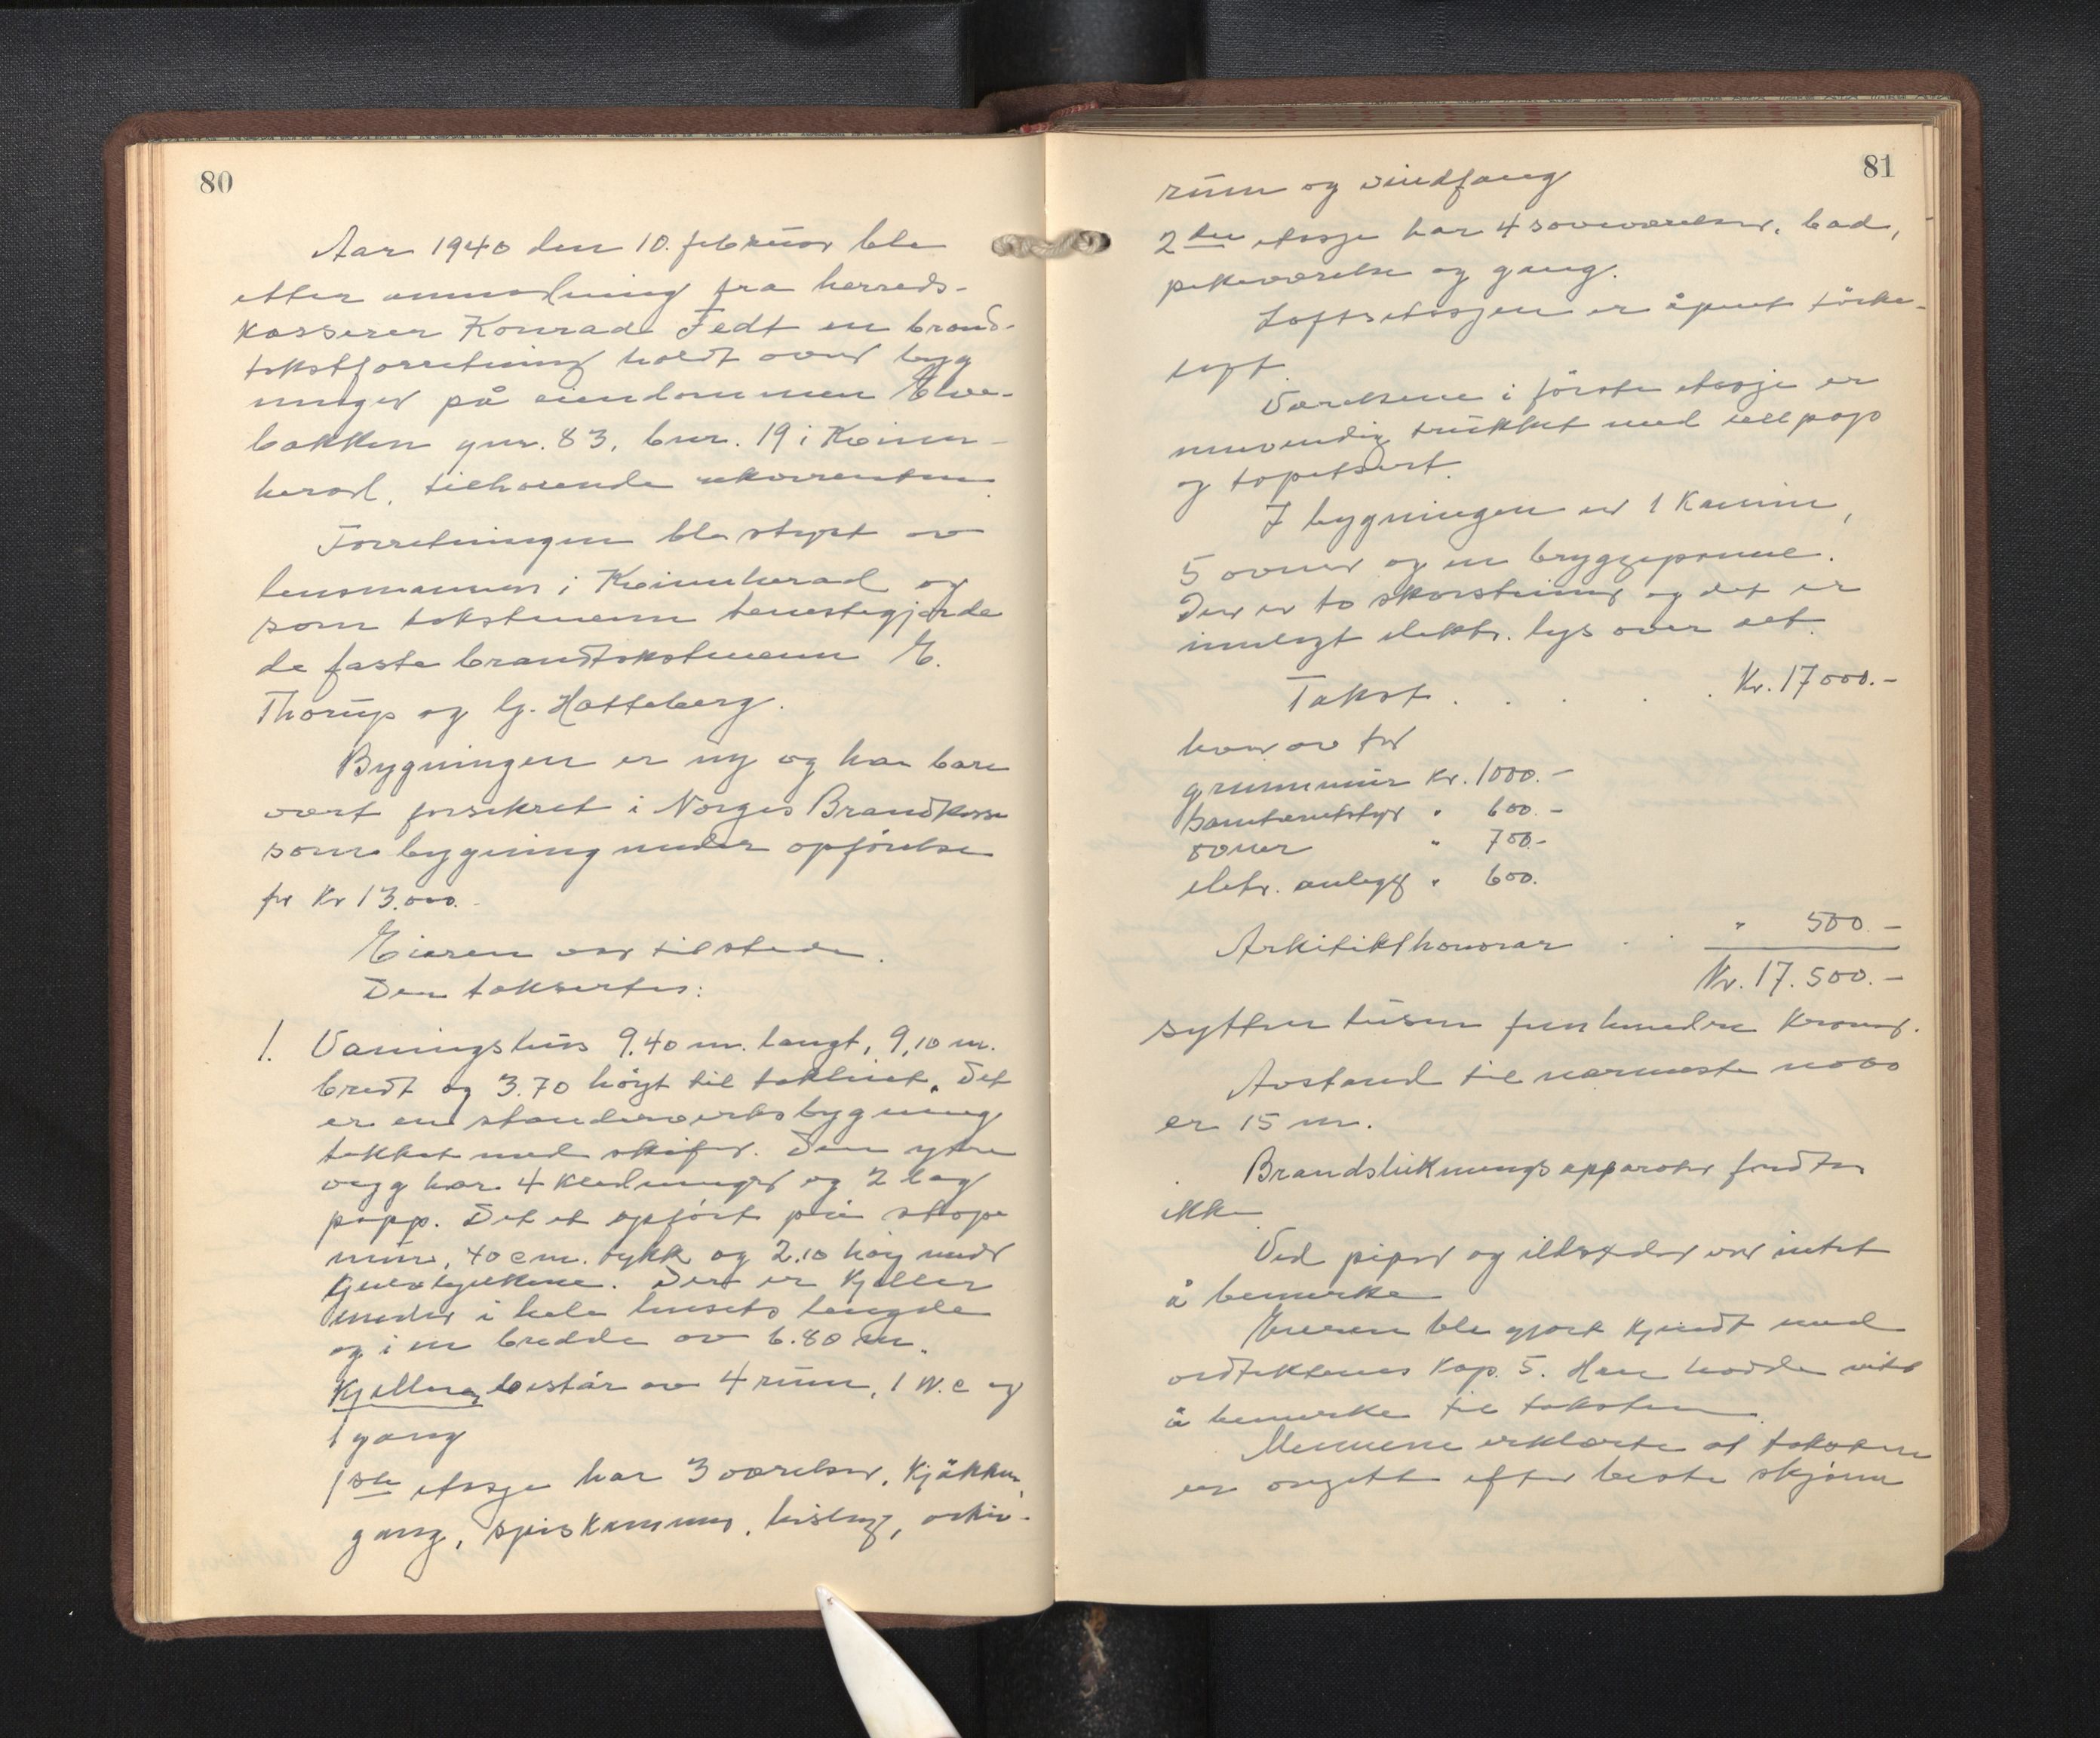 80
Aar 1940 den 10. februar ble
etter anmodning fra herreds-
kasserer Konrad Fedt en brand-
takstforretning holdt over byg
ninger på eiendommen Elve-
bakken gnr. 83, bnr. 19 i Kvinn-
herad, tilhørende rekvirenten.
Forretningen ble styrt av
lensmannen i Kvinnherad og
som takstmenn tenestegjorde
de faste brandtakstmenn E.
Thorup og G. Hatteberg.
Bygningen er ny og har bare
vært forsikret i Norges Brandkasse
som bygning under opførelse
for Kr 13.000.-
Eieren var tilstede.
Den taksertes:
1. Vaningshus 9.40 m. langt, 9,10 m.
bredt og 3.70 høgt til taklinet. Det
er en standerverksbygning
tekket med skifer. Den ytre
vegg har 4 kledninger og 2 lag
papp. Det et opført på støpe
mur, 40 cm. tykk og 2.10 høg under
gulvbjelkene. Der er kjeller
under i hele husets lengde
og i en bredde av 6.80 m.
Kjelleren består av 4 rum, 1 W.C og
1 gang
1ste etasje har 3 værelser, kjøkken,
gang, spiskammer, hislag, arkiv-
81
rum og vindfang
2den etasje har 4 soveværelser, bad,
pikeværelse og gang.
Loftsetasjen er åpent tørke-
loft.
Værelsene i første etasje er
innvendig trukket med cellpapp
og tapetsert.
I bygningen er 1 Kamin,
5 ovner og en bryggepanne.
Der er to skorsteiner og det er
innlagt elektr. lys over alt.
Takst . . . . . Kr. 17000.-
hvor av for
grunnmur kr. 1000.-
Sanitærutstyr " 600.-
ovner " 700.-
eletr. anlegg " 600.
Arkitekthonorar . . " 500.-
Kr. 17.500.-
sytten tusen fem hundre kroner.
Avstand til nærmeste nabo
er 15 m.
Brandslukningsapparater fandtes
ikke
Ved piper og ildsteder var intet
å bemerke
Eieren ble gjort kjendt med
vedtektenes kap. 5. Han hadde intet
å bemerke til taksten.
Mennene erklærte at taksten
er avgitt efter beste skjønn